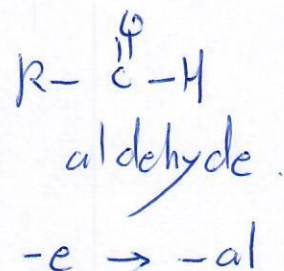 O
R-C-H
aldehyde.
-e → -al